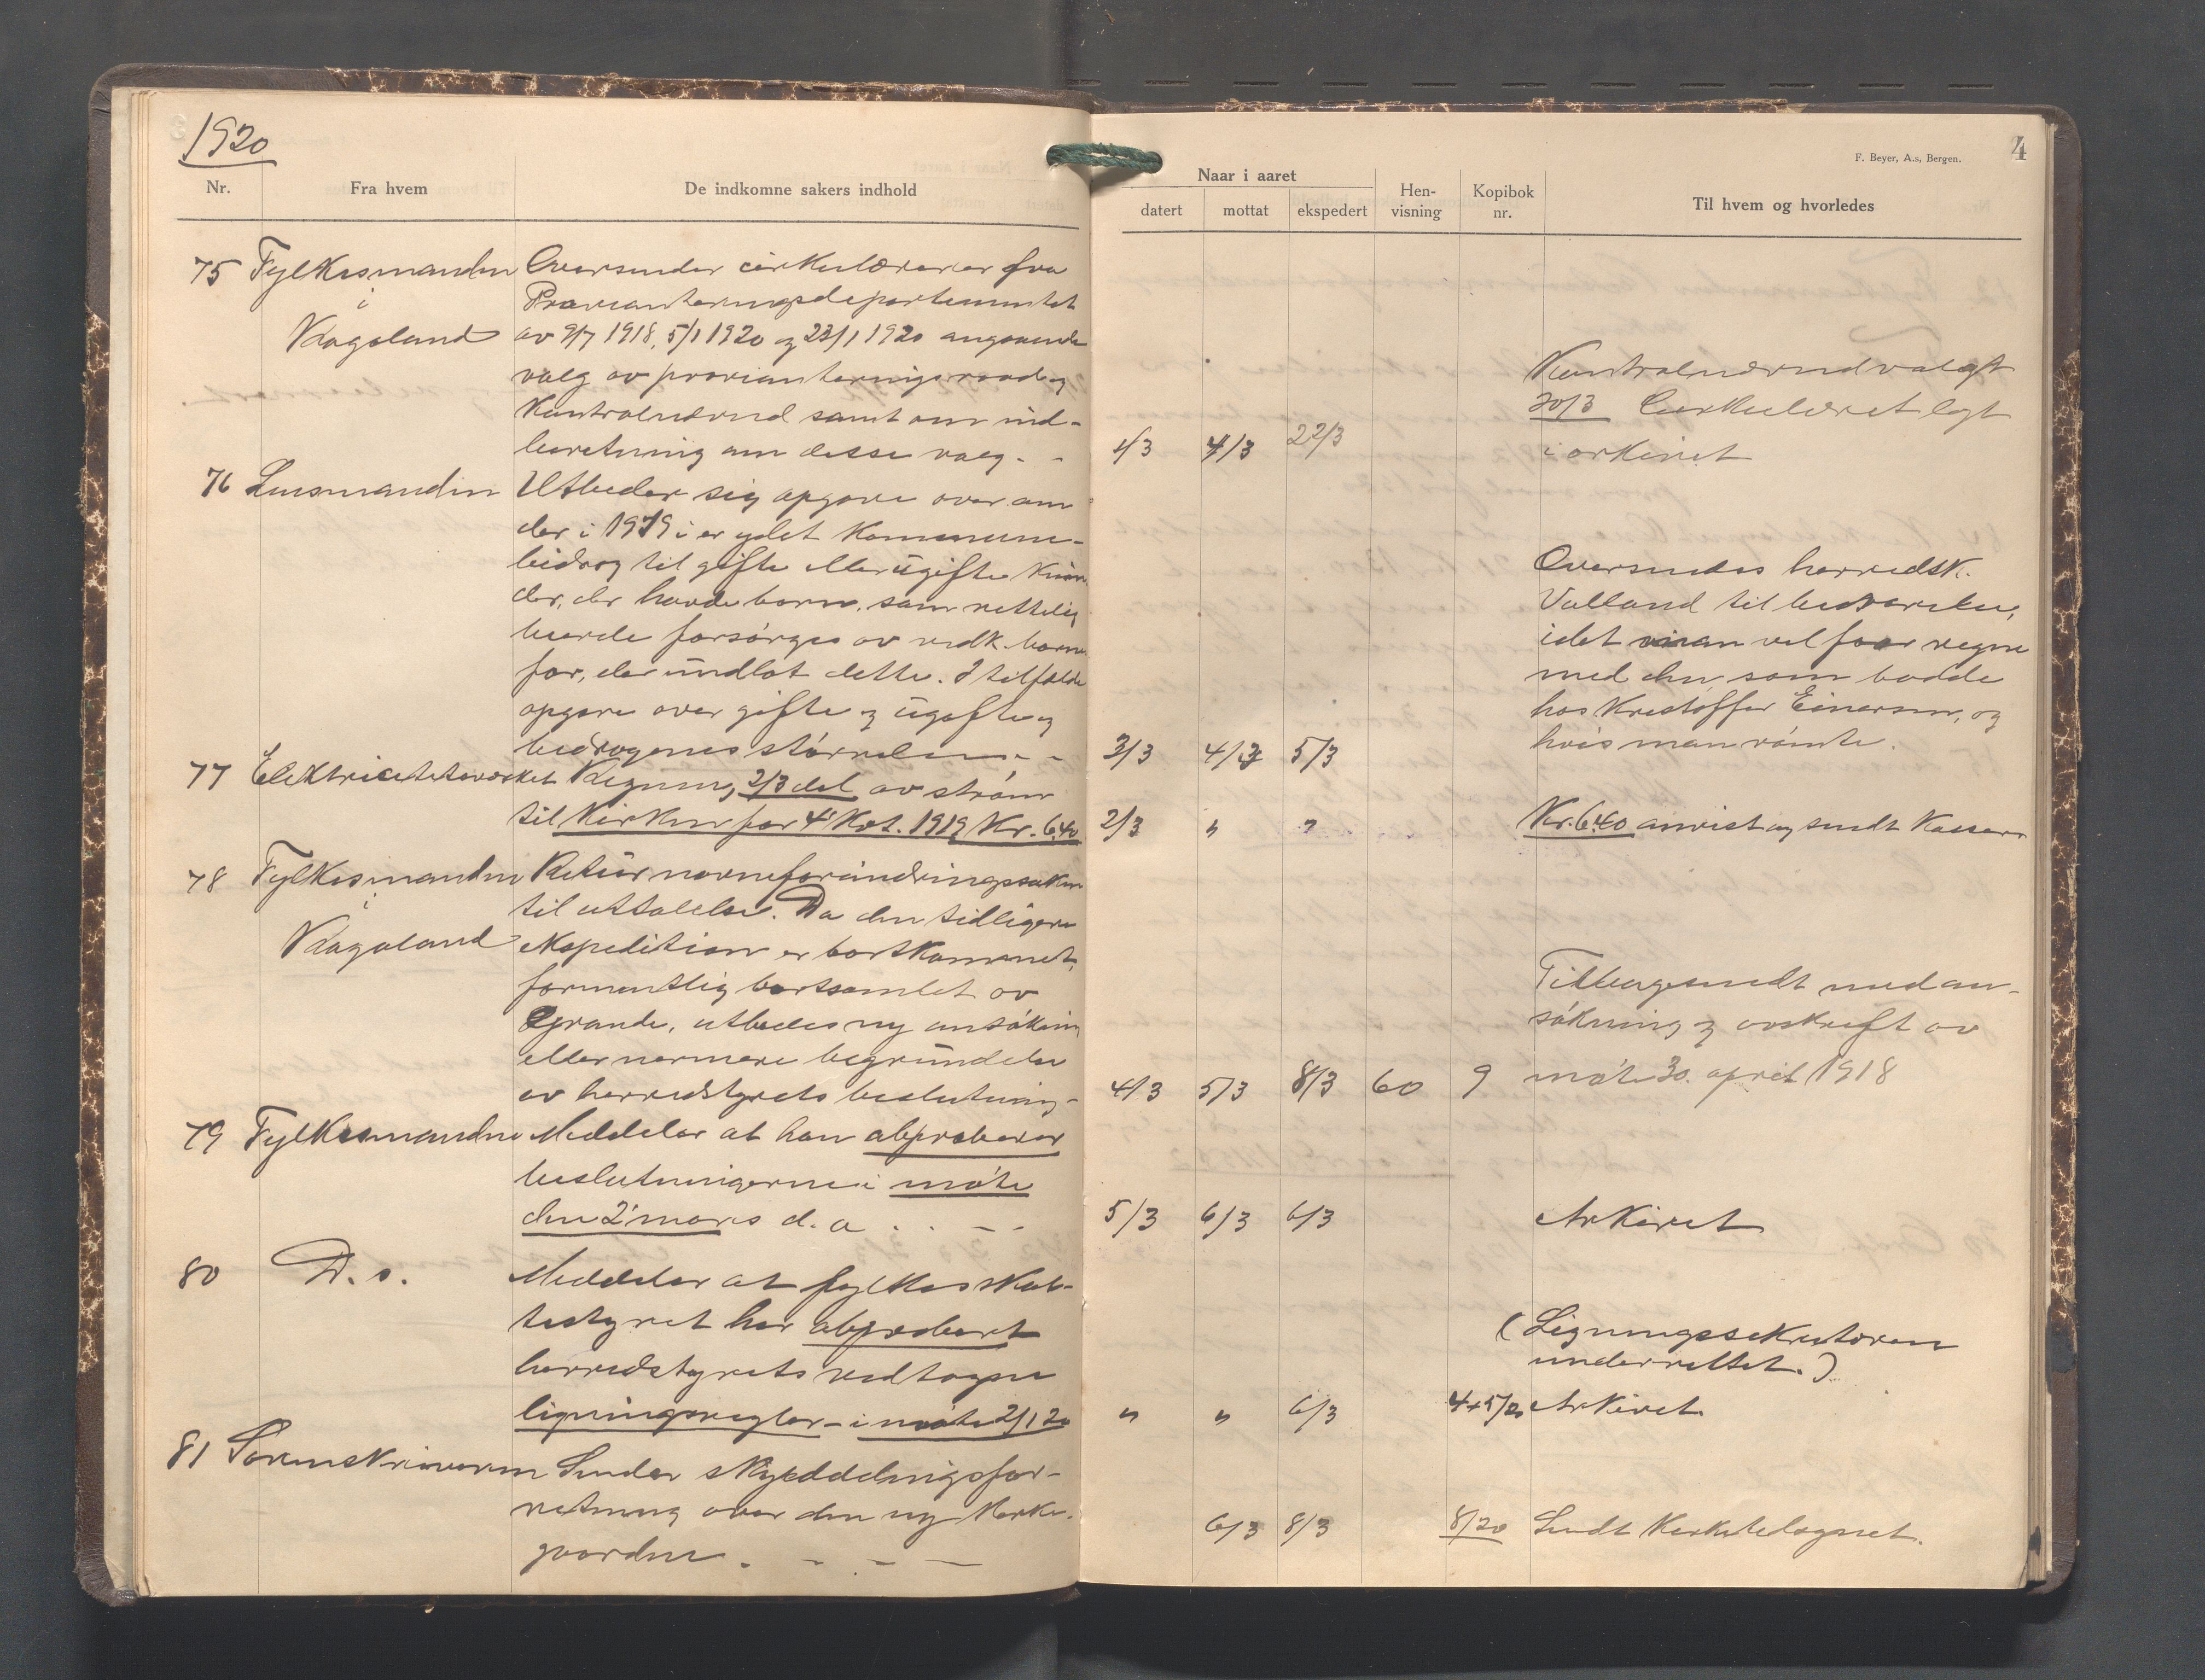 1920
Nr.
Fra hvem
De indkomne sakers indhold
75 Fylkesmanden
i
Rogaland
Oversender cirkulærer fra
Provianteringsdepartementet
av 9/7 1918, 5/1 1920 og 23/1 1920 angaaende
valg av provianteringsraad og
Kontrolnævnd samt om ind-
beretning om disse valg. -
76 Lensmanden
Utbeder sig opgave over om
der i 1919 i er ydet Kommune-
bidrag til gifte eller ugifte Kvin
der, der havde barn, som rettelig
burde forsørges av vedk. barne
far, der undlot dette. I tilfælde
opgave over gifte og ugifte og
bidragenes størrelse. - -
77 Elektricitetsverket
Regning 2/3 del av strøm
til Kirken for 4' Kvt. 1919 Kr. 6.40
78 Fylkesmanden
i
Rogaland
Retur navneforandringssaken
til uttalelse. Da den tidligere
ekspedition er bortkommet,
formentlig bortsamlet av
Grande, utbedes ny ansøkning
eller nærmere begrundelse
av herredstyrets beslutning -
79 Fylkesmanden
Meddeler at han approberer
beslutningerne i møte
den 2' mars d. a. . - -
80 D. s.
Meddeler at fylkesskat-
testyret har approbert
herredstyrets vedtagne
ligningsregler - i møte 2/1 20
81 Sorenskriveren
Sender skylddelingsfor-
retning over den ny Kirke-
gaarden. - - -
4
F. Beyer, A.s, Bergen.
Naar i aaret
datert
mottat
ekspedert
Hen-
visning
Kopibok
nr.
Til hvem og hvorledes
Kontrolnævnd valgt
20/3 Cirkulæret lagt
1/3 4/3 22/3 i arkivet
Oversendes herredsk.
Valland til besvarelse,
idet man vel faar regne
med den, som bodde
hos Kristoffer Einarsen, og
3/3 4/3 5/3 hvis man rømte.
2/3 " " Kr. 6.40 anvist og sendt Kasserer
Tilbagesendt med an-
søkning og avskrift av
4/3 5/3 8/3 60 9 møte 30. april 1918
5/3 6/3 6/3 Arkivet
(Ligningssekretæren
underrettet.)
" " 6/3 4+5/20 Arkivet.
6/3 8/3 8/20 Sendt Kirketilsynet.